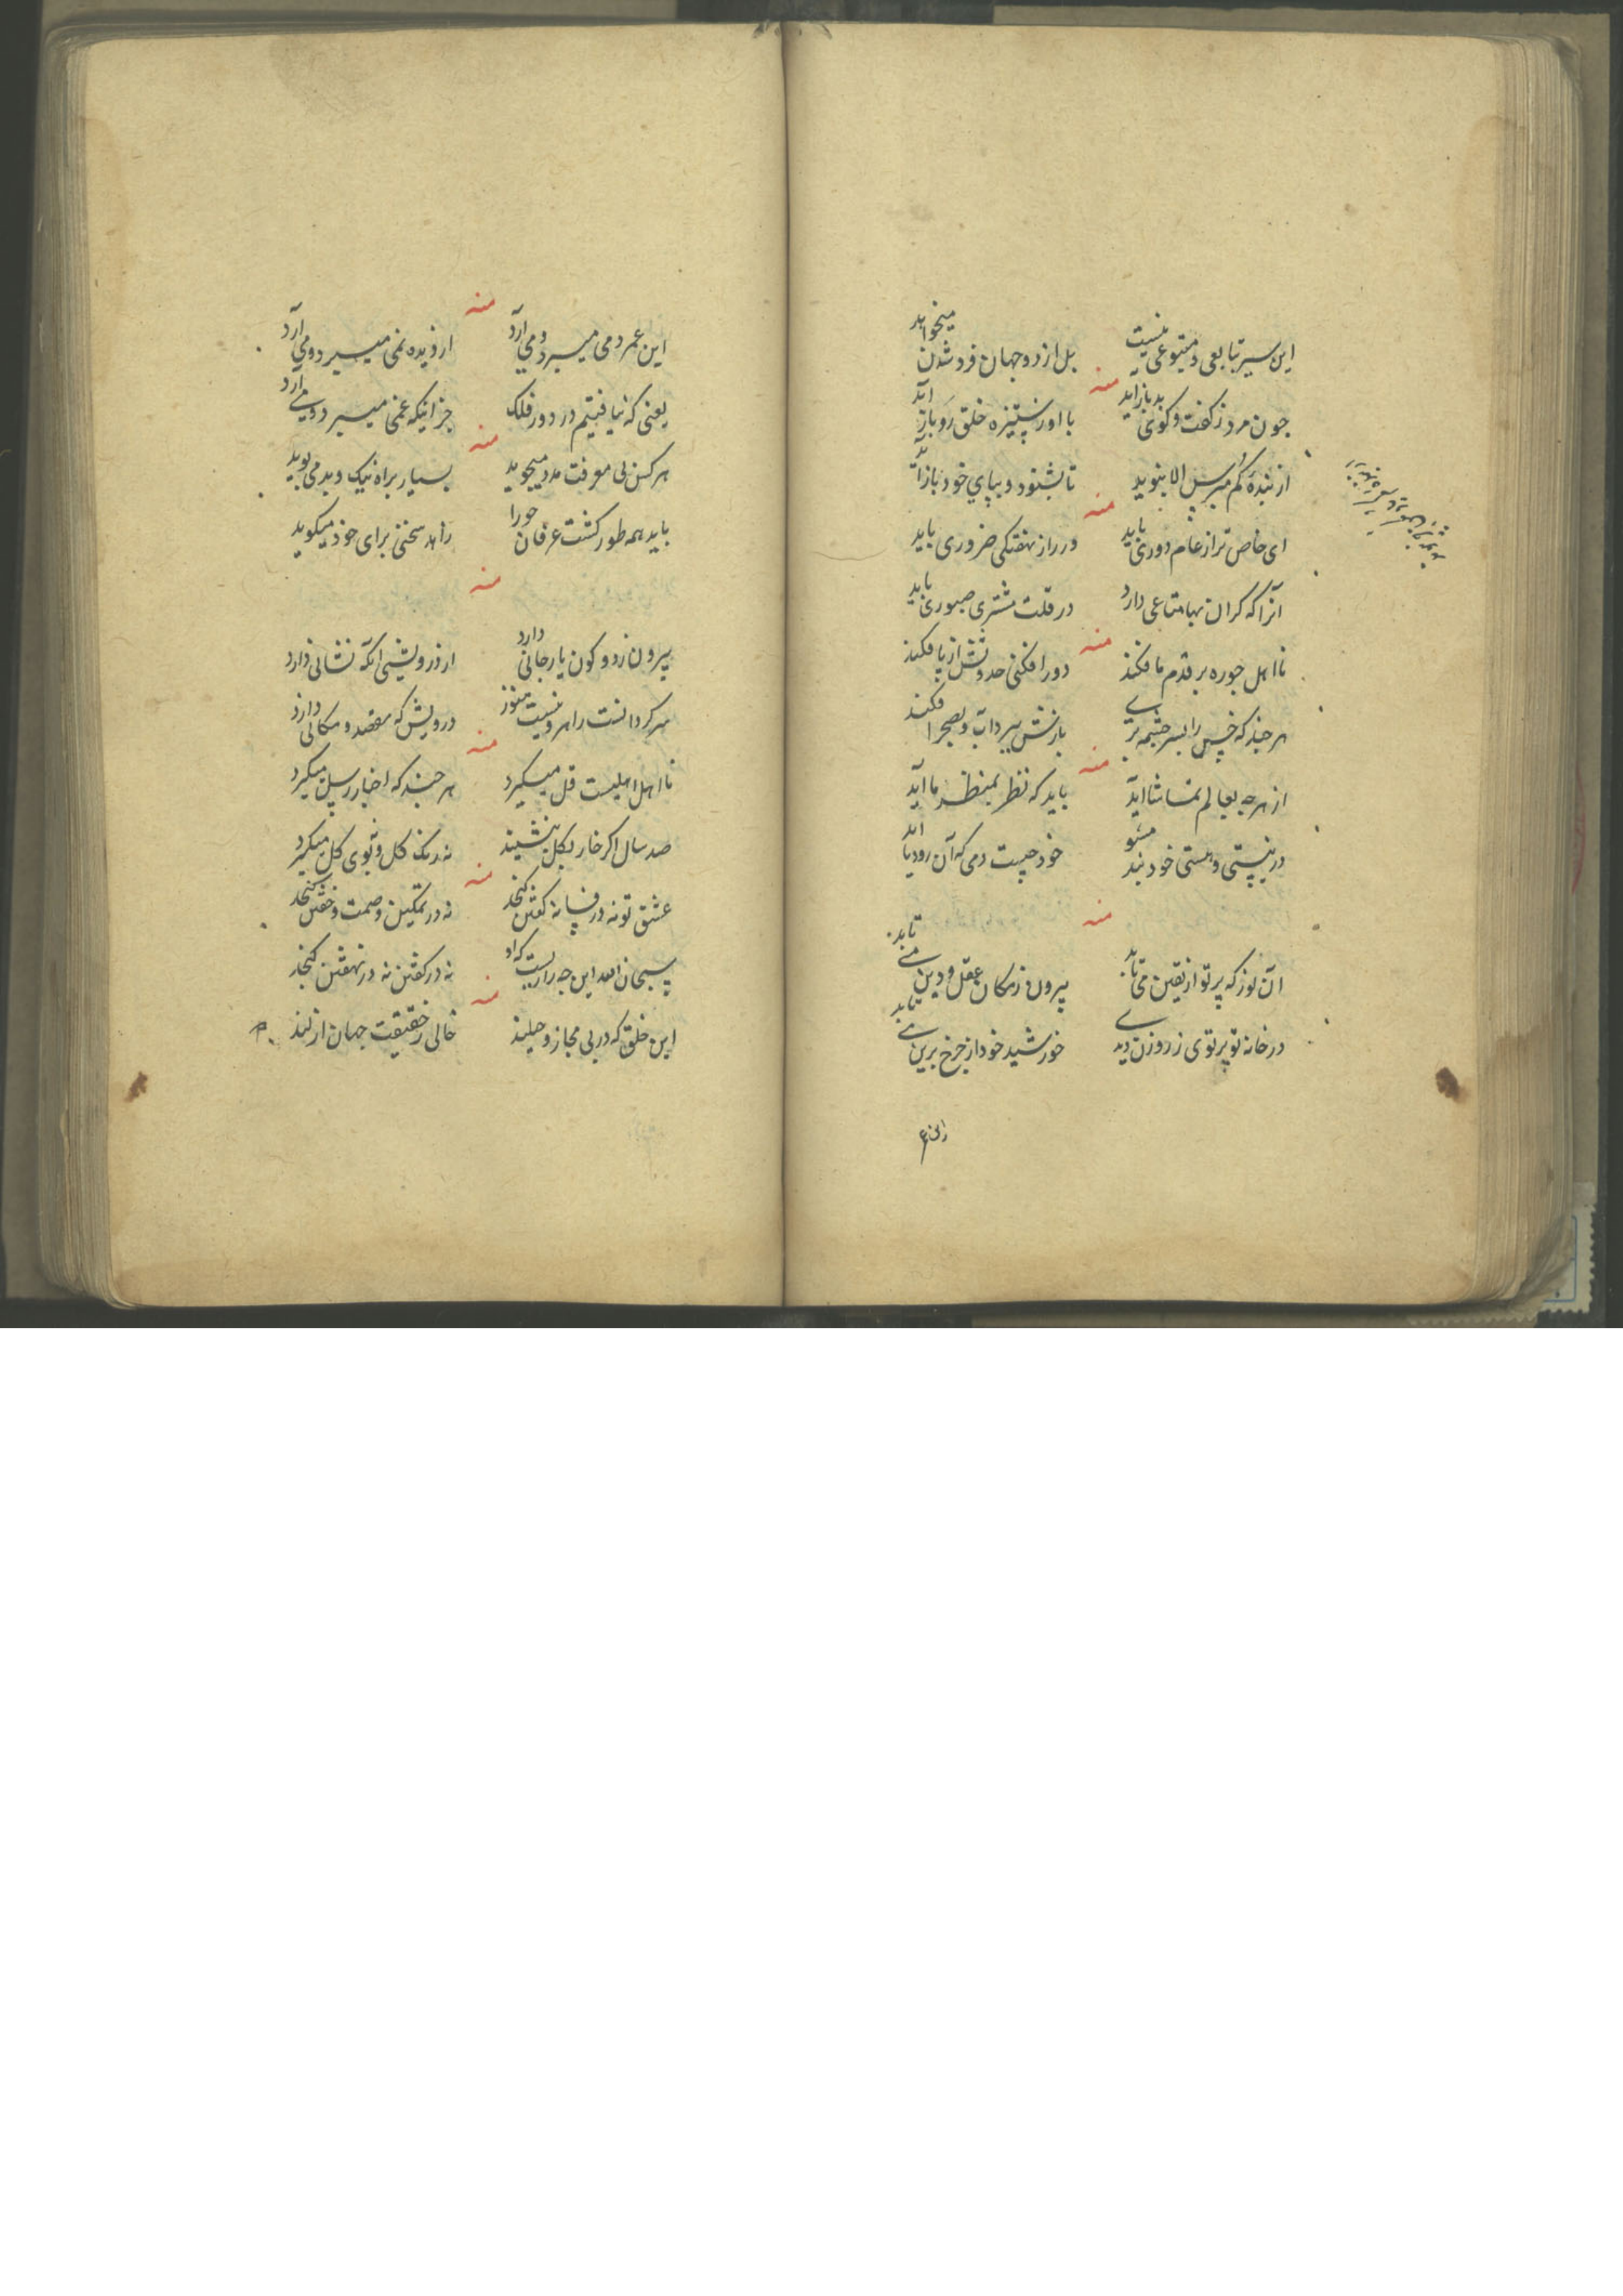 این سیر بتابعی و متبوعی نیست بل از دو جهان فرد شدن میخواهد
منه
چون مرد ز گفت و گوی بد باز آید با او ز ستیزه خلق رو باز آید
از بنده کم مپرس الا بنوید تا بشنود و بپای خود باز آید
منه
ای خاص ترا ز عام دوری باید در راز نهفتگی ضروری باید
آنرا که گران بها متاعی دارد در قلت مشتری صبوری باید
منه
نااهل چو ره بر قدم ما فکند دور افکنی حدوثش از پا فکند
هر چند که خس را بسر چشمه بری بازش سیرداب و بصحرا فکند
منه
از هرچه بعالم تماشا آید باید که نظر بمنظر ما آید
در نیستی و هستی خود بند مشو خود چیست دمی که آن رود یا آید
منه
آن نور که پرتو از یقین می تابد بیرون ز مکان عقل و دین می تابد
در خانه تو پرتوی ز روزن دیدی خورشید خود از چرخ برین می تابد
این عمر دمی میبرد و می آرد از دیده نمی میبرد و می آرد
یعنی که نیافتیم در دور فلک جز اینکه غمی میبرد و می آرد
منه
هر کس پی معرفت مدد میجوید بسیار براه نیک و بد می پوید
باید همه طور کشت عرفان جو را زاهد سخنی برای خود میگوید
منه
بیرون ز دو کون یار جانی دارد از درویشی آنکه نشانی دارد
سرگردانست راهرو نیست هنوز درویش که مقصد و مکانی دارد
منه
نااهل اهلیت قل میگیرد هر چند که اخبار رسل میگیرد
صد سال اگر خار بگل بنشیند نه رنگ گل و نه بوی گل میگیرد
منه
عشق تو نه در فسانه گفتن گنجد نه در تمکین و صمت و خفتن گنجد
سبحان الله این چه رازیست که او نه در گفتن نه در نهفتن گنجد
منه
این خلق که در پی مجاز و حیلند خالی ز حقیقت جهان ازلند